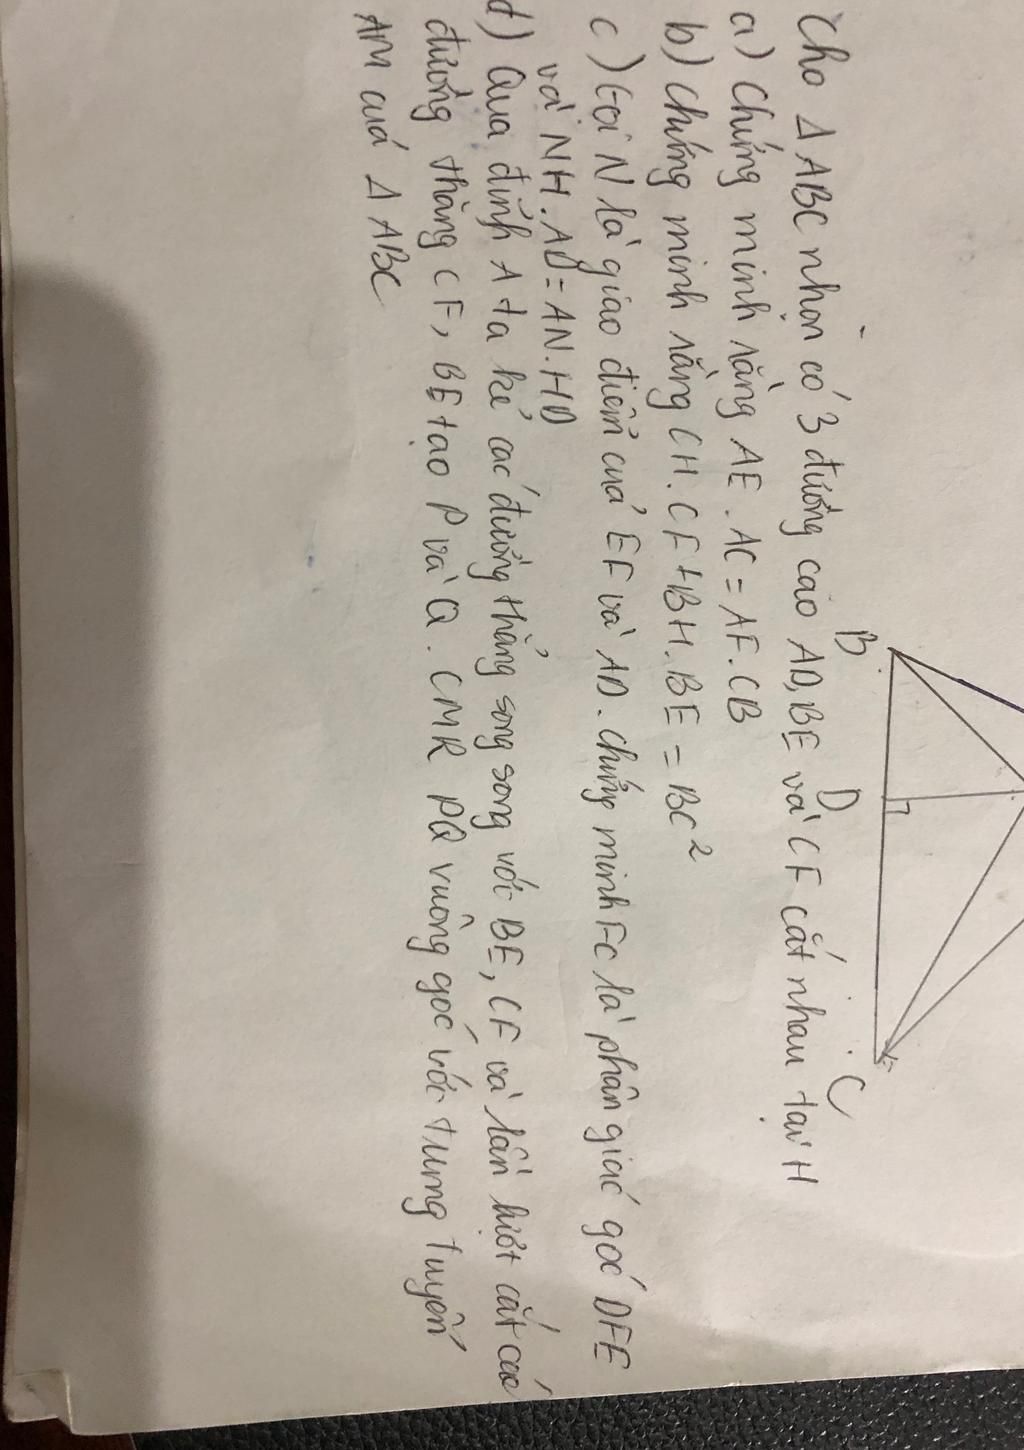 B
D
C
Cho Δ ABC nhọn có 3 đường cao AD, BE và CF cắt nhau tại H
a) Chứng minh rằng AE . AC = AF . CB
b) Chứng minh rằng CH . CF + BH . BE = BC²
c) Gọi N là giao điểm của EF và AD . chứng minh FC là phân giác góc DFE
và NH . AD = AN . HD
d) Qua đỉnh A ta kẻ các đường thẳng song song với BE, CF và lần lượt cắt các
đường thẳng CF, BE tạo P và Q . CMR PQ vuông góc với trung tuyến
AM của Δ ABC